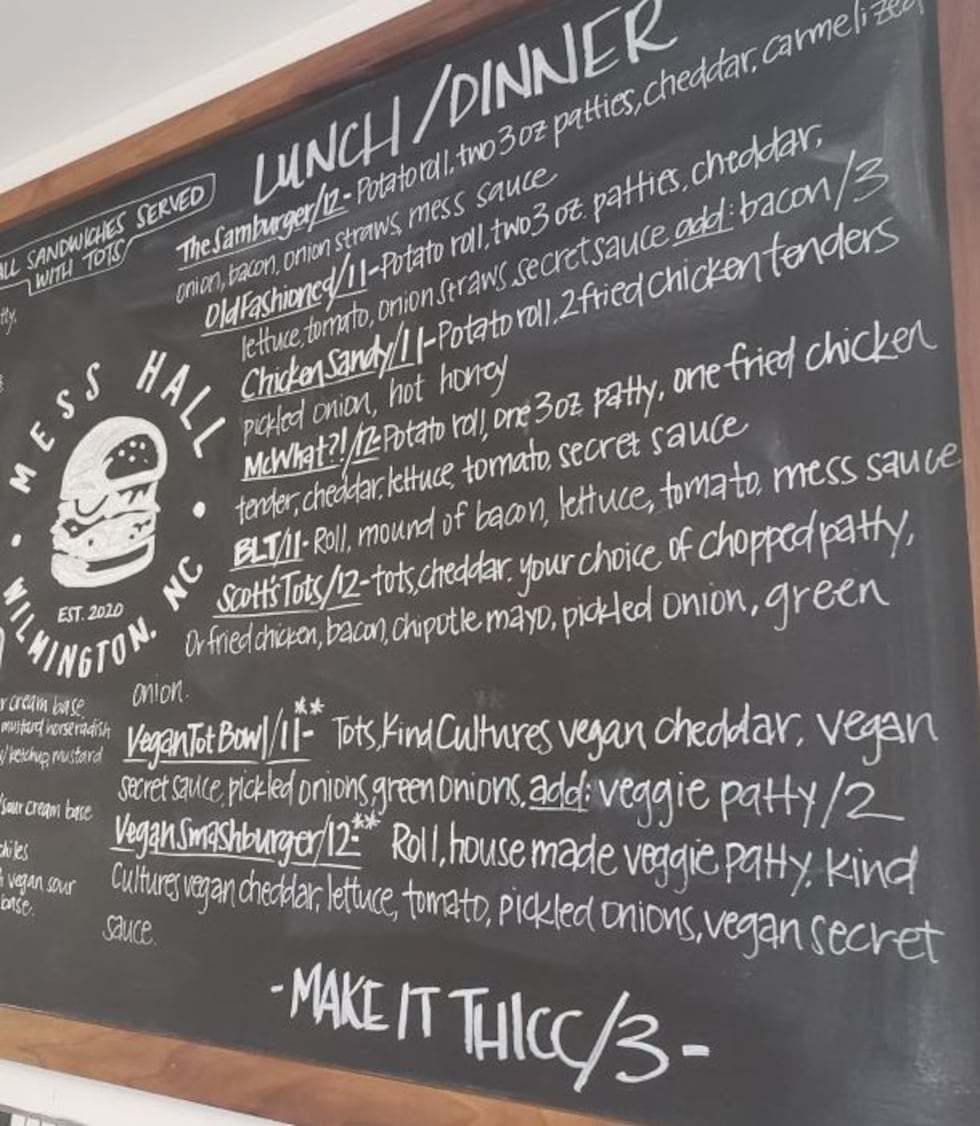 LUNCH/DINNER
ALL SANDWICHES SERVED
WITH TOTS
The Samburger/12- Potato roll, two 3 oz patties, cheddar, carmelized
onion, bacon, onion straws, mess sauce
Old Fashioned/11-Potato roll, two 3 oz. patties, cheddar,
lettuce, tomato, onion straws, secret sauce add: bacon/3
Chicken Sandy/11-Potato roll, 2 fried chicken tenders
pickled onion, hot honey
McWhat?!/12-Potato roll, one 3 oz patty, one fried chicken
tender, cheddar, lettuce, tomato, secret sauce
BLT/11- Roll, mound of bacon, lettuce, tomato, mess sauce
Scott's Tots/12-tots, cheddar, your choice of chopped patty,
Or fried chicken, bacon, chipotle mayo, pickled onion, green
onion.
Vegan Tot Bowl/11-** Tots, Kind Cultures vegan cheddar, vegan
secret sauce, pickled onions, green onions, add: veggie patty/2
Vegan Smashburger/12-** Roll, house made veggie patty, Kind
Cultures vegan cheddar, lettuce, tomato, pickled onions, vegan secret
sauce.
-MAKE IT THICC/3-
MESS HALL
EST. 2020
WILMINGTON. NC
cream base,
mustard horseradish
w/ ketchup, mustard
sour cream base
chiles
vegan sour
base.